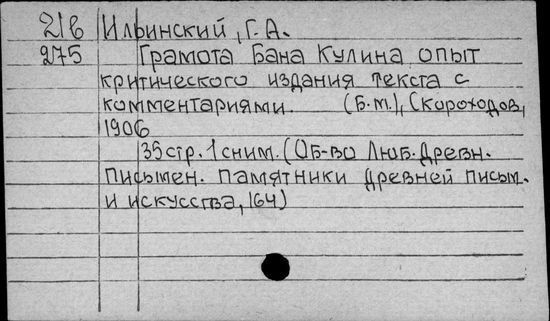 21в Ильинский, Г.А.
275 Грамота Бана Кулина опыт
критического издания текста с
комментариями. (Б.м.), Скороходов,
1906
35стр. 1сним. (Об-во Люб. Древн.
Письмен. Памятники древней письм.
и искусства, 164)